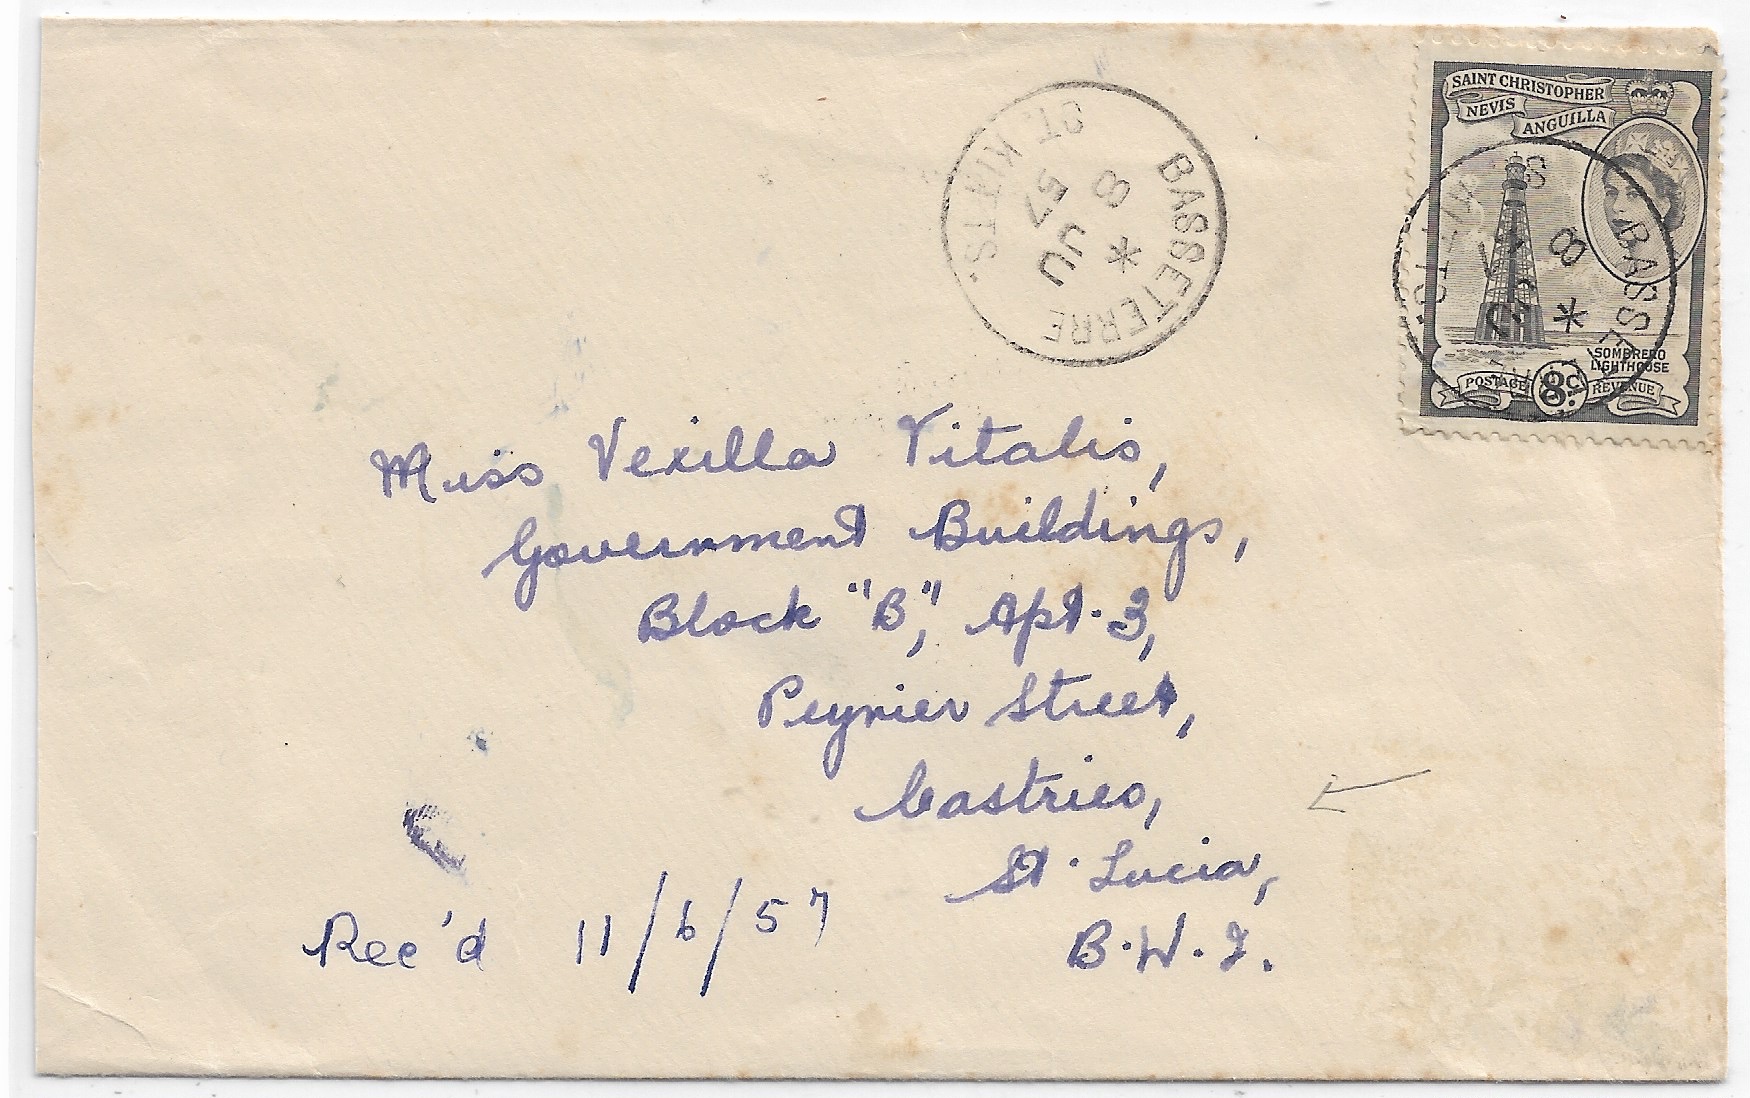 SAINT CHRISTOPHER
NEVIS
ANGUILLA
SOMBRERO
LIGHTHOUSE
POSTAGE 8c. REVENUE
BASSETERRE
*
8
JU
57
ST. KITTS.
Miss Vexilla Vitalis,
Government Buildings,
Block "B", Apt. 3,
Peynier Street,
Castries,
St. Lucia,
B.W.I.
Rec'd 11/6/57